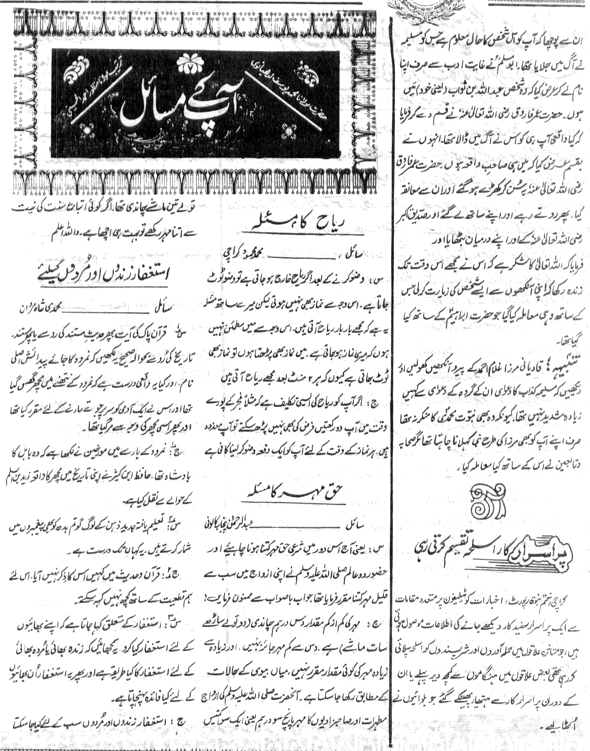 ان سے پوچھا کہ آپ کو اس شخص کا حال معلوم ہے جس کو مسیلمہ
نے آگ میں جلایا تھا، ابو مسلم نے غایت ادب سے صرف اپنا
نام لے کر عرض کیا کہ وہ شخص عبداللہ بن ثوب (یعنی خود) ہیں
ہوں۔ حضرت عمر فاروق رضی اللہ تعالیٰ عنہ نے قسم دے کر فرمایا
کہ کیا واقعی آپ ہی کو اس نے آگ میں ڈالا تھا، انہوں نے
بقسم عرض کیا کہ میں ہی صاحب واقعہ ہوں۔ حضرت عمر فاروق
رضی اللہ تعالیٰ عنہ یہ سن کر کھڑے ہو گئے اور ان سے معانقہ
کیا۔ پھر روتے رہے اور اپنے ساتھ لے گئے اور صدیق اکبر
رضی اللہ تعالیٰ عنہ کے اور اپنے درمیان بٹھایا اور
فرمایا کہ اللہ تعالیٰ کا شکر ہے کہ اس نے مجھے اس وقت تک
زندہ رکھا کہ اپنی آنکھوں سے ایسے شخص کی زیارت کر لی جس
کے ساتھ وہی معاملہ کیا گیا جو حضرت ابراہیمؑ کے ساتھ کیا
گیا تھا۔
تنبیہ: قادیانی مرزا غلام احمد کے پیرو آنکھیں کھولیں اور
دیکھیں کہ مسیلمہ کذاب کا دعویٰ ان کے گرو کے دعوے سے کہیں
زیادہ شدید نہیں تھا۔ کیونکہ وہ بھی نبوت محمدی کا منکر نہ تھا
صرف اپنے آپ کو بھی مرزا کی طرح نبی کہلانا چاہتا تھا مگر صحابہ
و تابعین نے اس کے ساتھ کیا معاملہ کیا۔
پراسرار کار اسلحہ تقسیم کرتی رہی
کراچی (ختم نبوت رپورٹ) اخبارات کو ٹیلیفون پر متعدد مقامات
سے ایک پراسرار سفید کار دیکھے جانے کی اطلاعات موصول ہوئی
ہیں جو متاثرہ علاقوں میں حملہ آوروں اور شرپسندوں کو اسلحہ سپلائی
کر رہی تھی بعض علاقوں میں ہنگاموں سے کچھ دیر پہلے یا ان
کے دوران پر اسرار کار سے ہتھیار پھینکے گئے جو بلوائیوں نے
اٹھا لیے۔
آپ کے مسائل
ریاح کا مسئلہ
سائل محمد مجید کراچی
س: وضو کرنے کے بعد اگر ریاح خارج ہو جاتی ہے تو وضو ٹوٹ
جاتا ہے۔ اس وجہ سے نماز بھی نہیں ہوتی لیکن میرے ساتھ مسئلہ
یہ ہے کہ مجھے بار بار ریاح آتی ہیں۔ اس وجہ سے میں مطمئن نہیں
ہوں کہ میری نماز ہو جاتی ہے۔ میں نماز بھی پڑھتا ہوں تو نماز بھی
ٹوٹ جاتی ہے کیوں کہ ہر ۲ منٹ بعد مجھے ریاح آتی ہیں
ج: اگر آپ کو ریاح کی ایسی تکلیف ہے کہ مثلاً فجر کے پورے
وقت میں آپ دو رکعتیں فرض کی بھی نہیں پڑھ سکتے تو آپ معذور
ہیں ہر نماز کے وقت کے لئے آپ کو ایک دفعہ وضو کر لینا کافی ہے
حق مہر کا مسئلہ
سائل عبدالرحمٰن پنجابی کالونی
س: یعنی آج اس دور میں شرعی حق مہر کتنا ہونا چاہئے اور
حضور دو عالم صلی اللہ علیہ وسلم نے اپنی ازواج میں سب سے
قلیل مہر کتنا مقرر فرمایا تھا جواب باصواب سے ممنون فرمائیں؟
ج: مہر کی کم از کم مقدار دس درہم چاندی (دو تولے ساڑھے
سات ماشے) ہے۔ دس سے کم مہر جائز نہیں۔ اور زیادہ سے
زیادہ مہر کی کوئی مقدار مقرر نہیں، میاں بیوی کے حالات
کے مطابق رکھا جا سکتا ہے۔ آنحضرت صلی اللہ علیہ وسلم کی ازواج
مطہرات اور صاحبزادیوں کا مہر پانچ سو درہم یعنی ایک سو اکتیس
تولے تین ماشے چاندی تھا۔ اگر کوئی اتباع سنت کی نیت
سے اتنا مہر رکھے تو بہت ہی اچھا ہے۔ واللہ اعلم
استغفار زندوں اور مردوں کیلئے
سائل محمدی شاہ
س: قرآن پاک کی آیت پھر حدیث مستند کی رو سے یا پھر مستند
تاریخ کی رو سے بحوالہ صحیح لکھیں کہ نمرود کا جائے پیدائش اصلی
نام۔ اور کیا یہ واقعی درست ہے کہ نمرود کے نتھنے میں مچھر گھس گیا
تھا اور اس نے ایک آدمی کو سر پر جوتے مارنے کے لئے مقرر کیا تھا
اور پھر اسی مچھر کی وجہ سے مر گیا تھا۔
ج: نمرود کے بارے میں مورخین نے لکھا ہے کہ وہ بابل کا
بادشاہ تھا۔ حافظ ابن کثیرؒ نے اپنی تاریخ میں مچھر کا واقعہ زید بن اسلم
کے حوالے سے نقل کیا ہے۔
س: تعلیم یافتہ جدید ذہن کے لوگ گوتم بدھ کو بھی پیغمبروں میں
شمار کرتے ہیں۔ یہ کہاں تک درست ہے۔
ج: قرآن و حدیث میں کہیں اس کا ذکر نہیں آیا۔ اس لئے
ہم قطعیت کے ساتھ کچھ نہیں کہہ سکتے۔
س: استغفار کے متعلق کہا جاتا ہے کہ اپنے بھائیوں
کے لئے استغفار کیا کرو۔ سمجھا ئیں کہ زندہ بھائی یا مردہ بھائی
کے لئے استغفار کا کیا طریقہ ہے اور پھر یہ استغفار ان بھائیوں
کے لئے کیا فائدہ پہنچاتا ہے۔
ج: استغفار زندوں اور مردوں سب کے لئے کیا جا سکتا